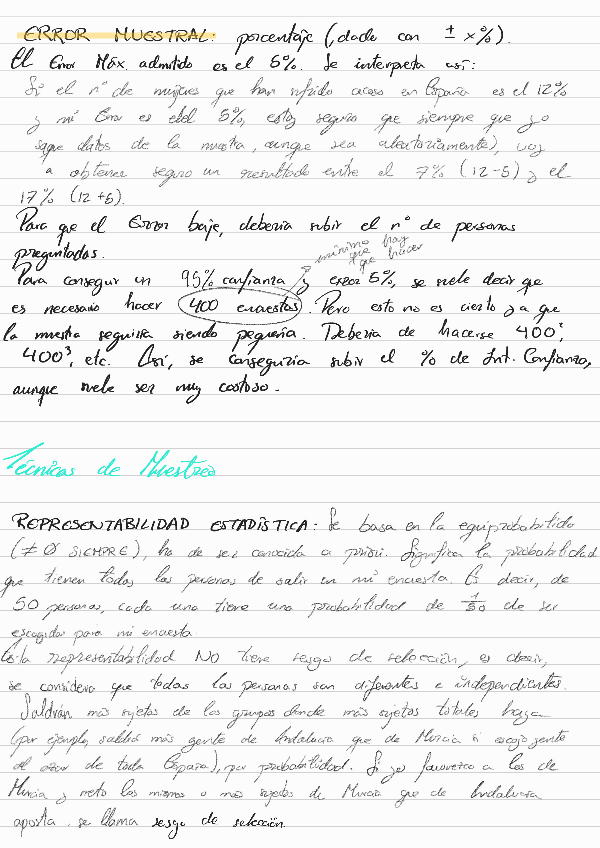 ERROR MUESTRAL: porcentaje (, dado con ± x%).
El Error Máx. admitido es el 5%. Se interpreta así:
Si el nº de mujeres que han sufrido acoso en España es el 12%
y mi Error es del 5%, estoy seguro que siempre que yo
saque datos de la muestra, aunque sea aleatoriamente), voy
a obtener seguro un resultado entre el 7% (12-5) y el
17% (12+5).
Para que el Error baje, debería subir el nº de personas
preguntadas.
mínimo hay
que que hacer
Para conseguir un 95% confianza y error 5%, se suele decir que
es necesario hacer 400 encuestas. Pero esto no es cierto ya que
la muestra seguiría siendo pequeña. Debería de hacerse 400²,
400³, etc. Así, se conseguiría subir el % de Int. Confianza,
aunque suele ser muy costoso.
Técnicas de Muestreo
REPRESENTABILIDAD ESTADÍSTICA: Se basa en la equiprobabilidad
(≠ Ø SIEMPRE), ha de ser conocida a priori. Significa la probabilidad
que tienen todas las personas de salir en mi encuesta. Es decir, de
50 personas, cada una tiene una probabilidad de 1/50 de ser
escogidas para mi encuesta.
la representabilidad NO tiene sesgo de selección, es decir,
se considera que todas las personas son diferentes e independientes.
Saldrán más sujetos de los grupos donde más sujetos totales haya
(por ejemplo, saldrá más gente de Andalucía que de Murcia si escojo gente
al azar de toda España), por probabilidad. Si yo favorezco a los de
Murcia y meto los mismos o más sujetos de Murcia que de Andalucía
aposta, se llama sesgo de selección.